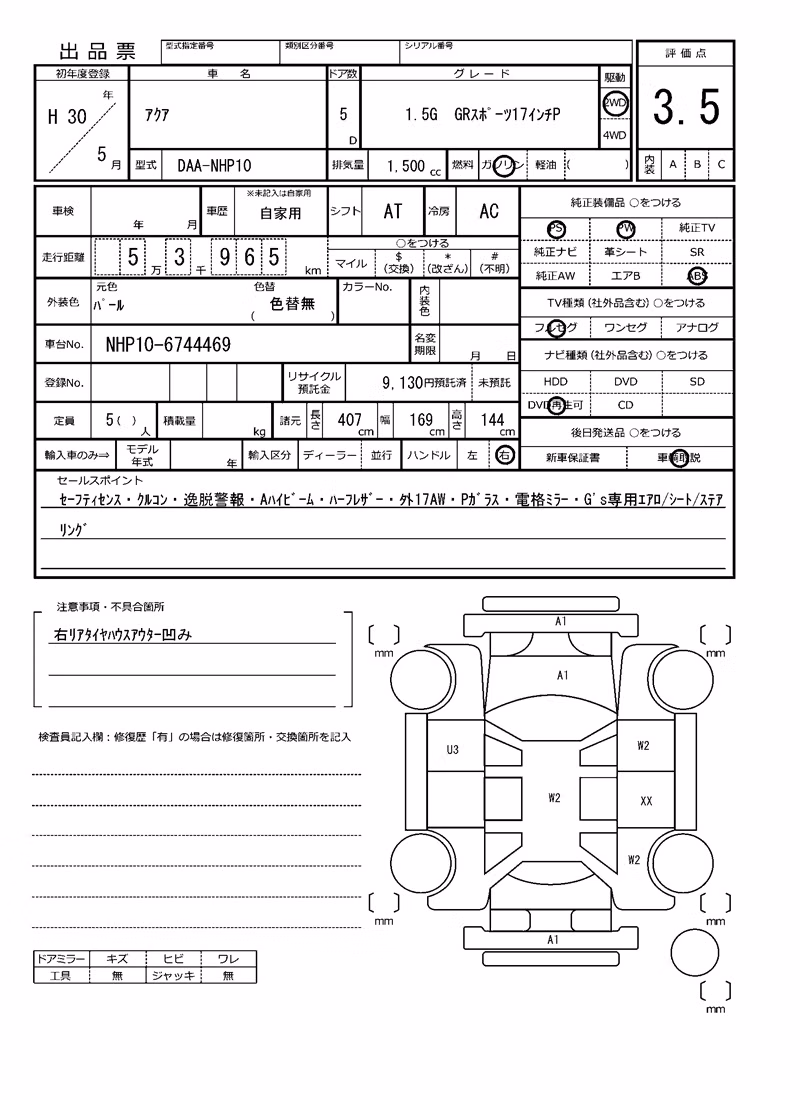 出品票
型式指定番号 類別区分番号 シリアル番号
初年度登録 車名 ドア数 グレード 駆動 評価点
H 30 年 5 月
アクア
5 D
1.5G GRスポーツ17インチP
2WD
4WD
3.5
型式 DAA-NHP10 排気量 1,500 cc 燃料 ガソリン 軽油 ( )
内装 A B C
車検 年 月 車歴 ※未記入は自家用 自家用 シフト AT 冷房 AC
純正装備品 ○をつける
PS PW 純正TV
純正ナビ 革シート SR
純正AW エアB ABS
走行距離 5 万 3 千 9 6 5 km
○をつける
マイル $(交換) *(改ざん) #(不明)
外装色 元色 パール 色替 ( 色替無 ) カラーNo. 内装色
TV種類(社外品含む) ○をつける
フルセグ ワンセグ アナログ
車台No. NHP10-6744469 名変期限 月 日
ナビ種類(社外品含む) ○をつける
HDD DVD SD
DVD再生可 CD
登録No. リサイクル預託金 9,130円預託済 未預託
定員 5( ) 人 積載量 kg 諸元 長さ 407 cm 幅 169 cm 高さ 144 cm
後日発送品 ○をつける
新車保証書 車輌取説
輸入車のみ⇒ モデル年式 年 輸入区分 ディーラー 並行 ハンドル 左 右
セールスポイント
セーフティセンス・クルコン・逸脱警報・Aハイビーム・ハーフレザー・外17AW・Pガラス・電格ミラー・G's専用エアロ/シート/ステア
リング
注意事項・不具合箇所
右リアタイヤハウスアウター凹み
検査員記入欄:修復歴「有」の場合は修復箇所・交換箇所を記入
A1
mm mm
A1
U3 W2
W2 XX
W2
mm mm
A1
mm
ドアミラー キズ ヒビ ワレ
工具 無 ジャッキ 無